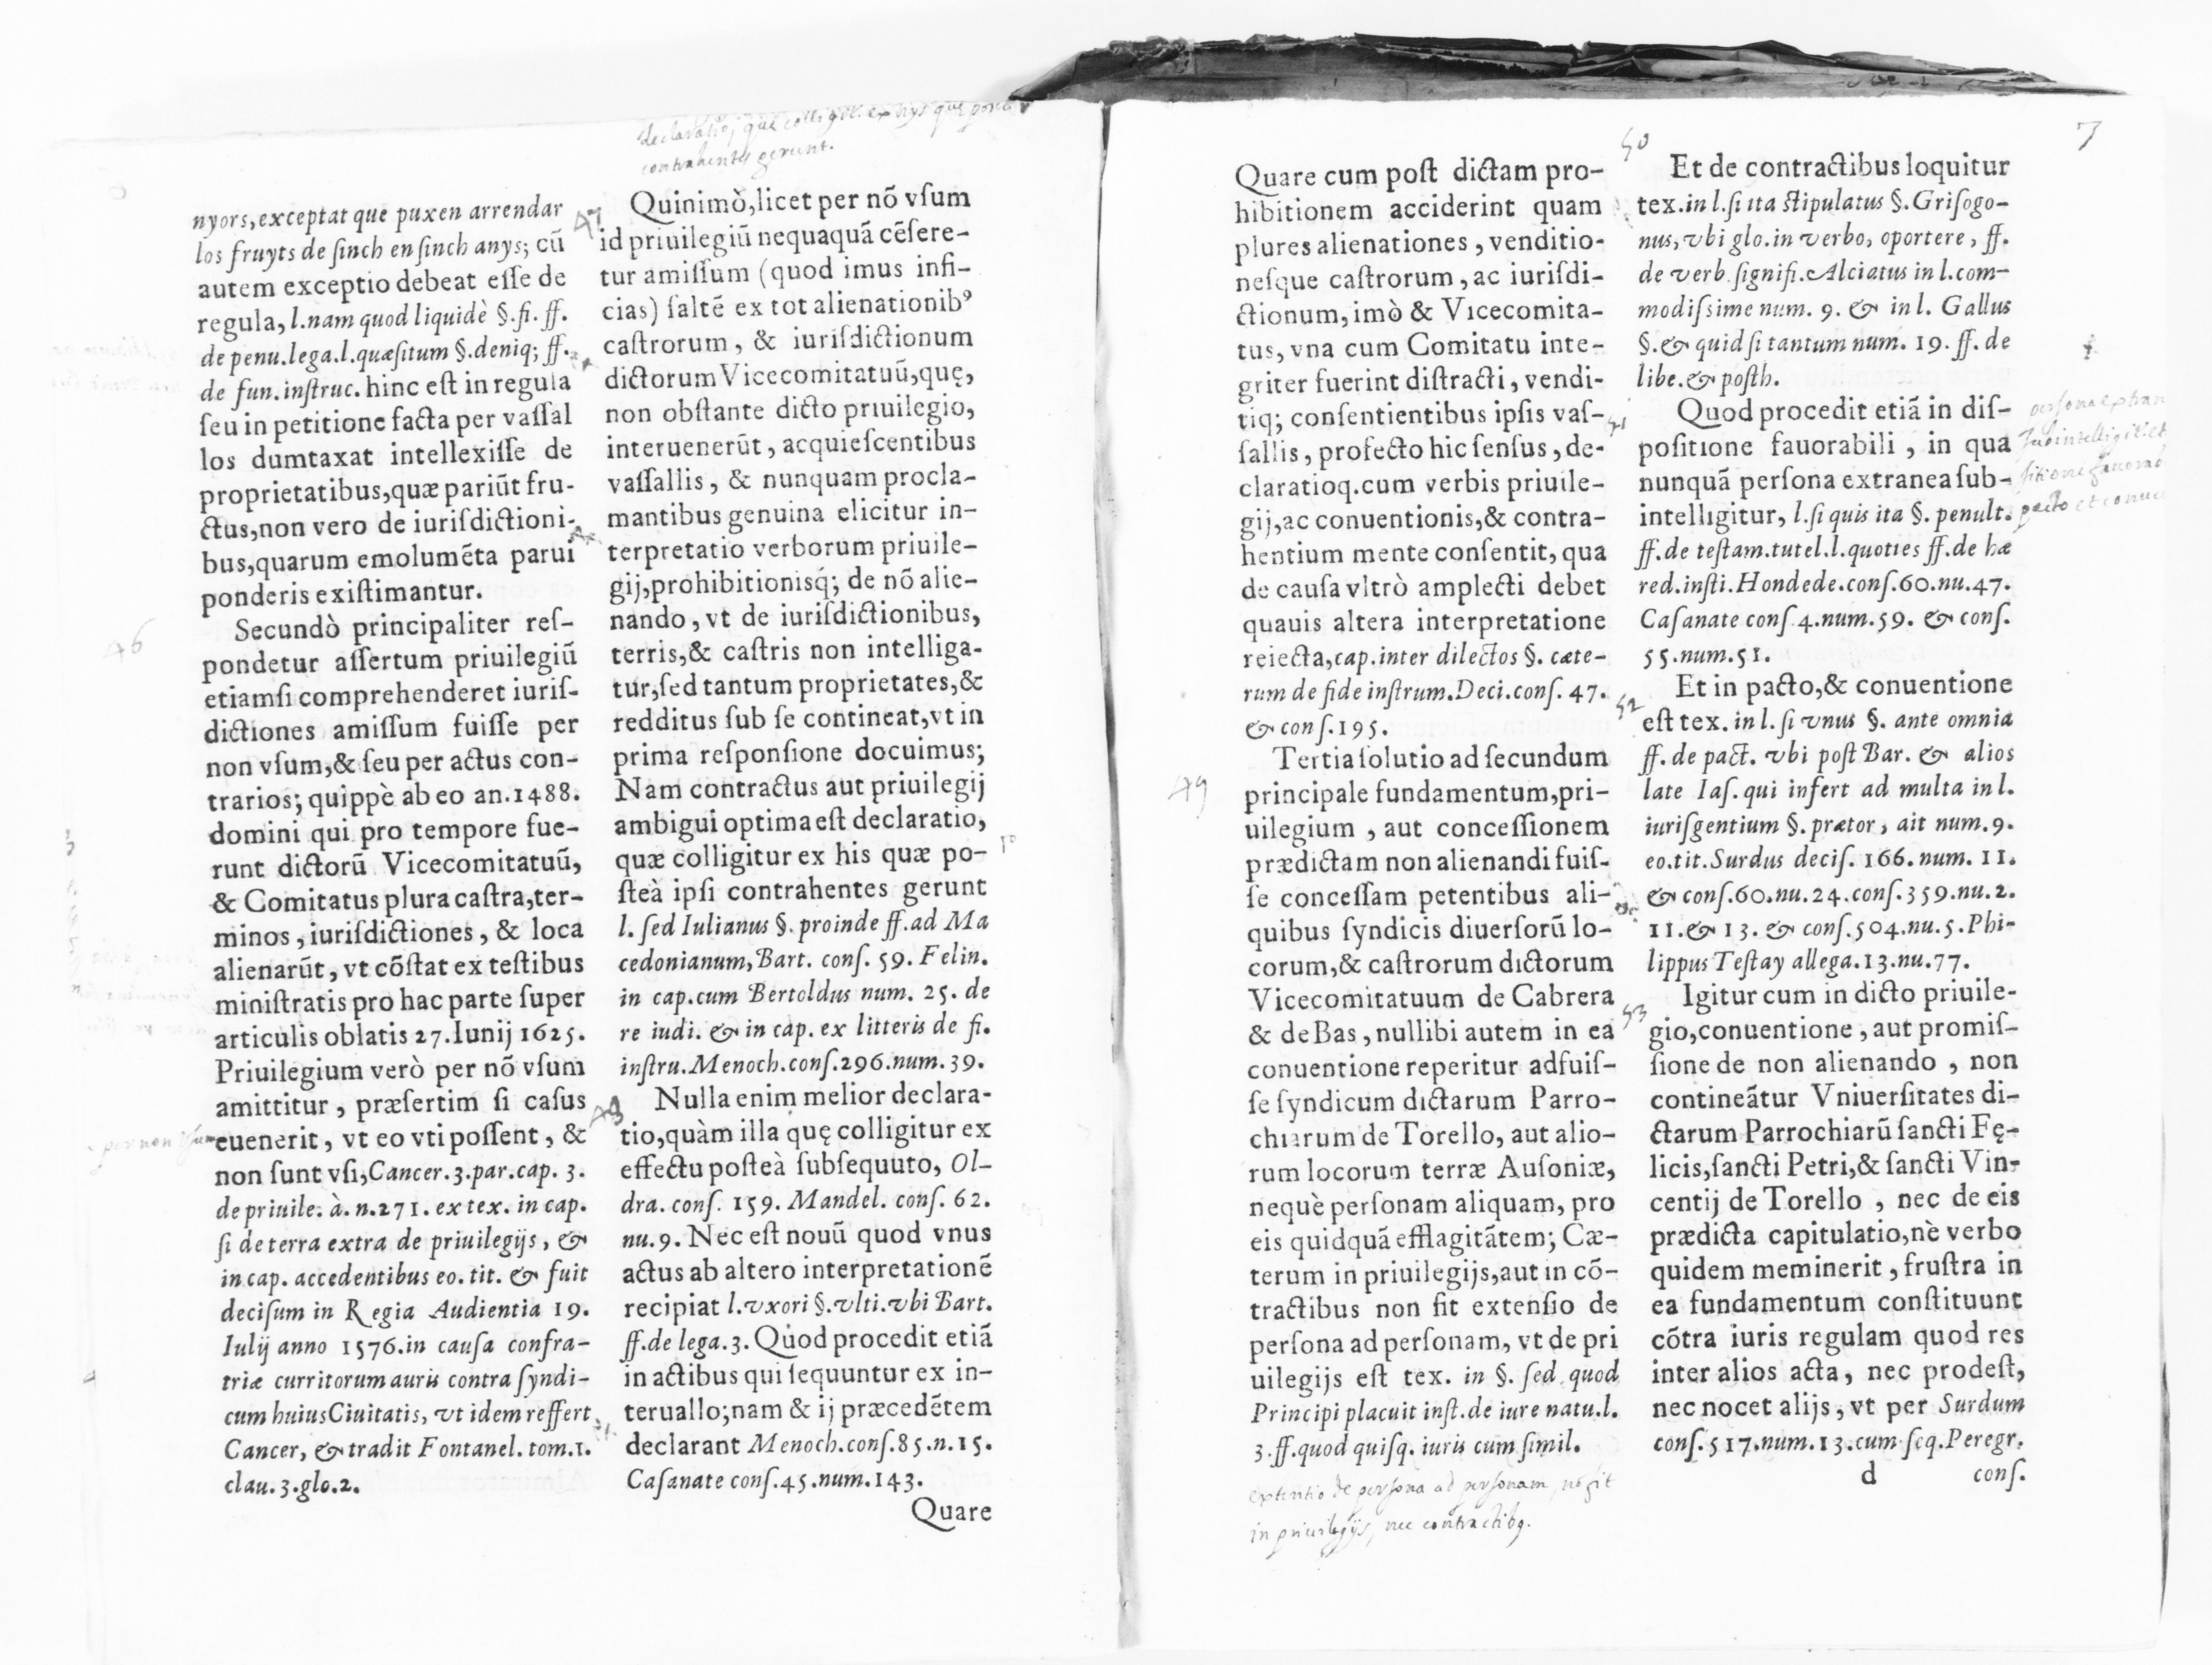 declaratio, que colligit. ex hys que post
contrahentes gerunt.
nyors, exceptat que puxen arrendar
los fruyts de sinch en sinch anys; cũ
autem exceptio debeat esse de
regula, l. nam quod liquidè §. fi. ff.
de penu. lega. l. quæsitum §. deniq; ff.
de fun. instruc. hinc est in regula
seu in petitione facta per vassal
los dumtaxat intellexisse de
proprietatibus, quæ pariũt fru-
ctus, non vero de iurisdictioni-
bus, quarum emolumẽta parui
ponderis existimantur.
46
Secundò principaliter res-
pondetur assertum priuilegiũ
etiamsi comprehenderet iuris-
dictiones amissum fuisse per
non vsum, & seu per actus con-
trarios; quippè ab eo an. 1488.
domini qui pro tempore fue-
runt dictorũ Vicecomitatuũ,
& Comitatus plura castra, ter-
minos, iurisdictiones, & loca
alienarũt, vt cõstat ex testibus
ministratis pro hac parte super
articulis oblatis 27. Iunij 1625.
Priuilegium verò per nõ vsum
amittitur, præsertim si casus
per non vsum
euenerit, vt eo vti possent, &
non sunt vsi, Cancer. 3. par. cap. 3.
de priuile. à. n. 271. ex tex. in cap.
si de terra extra de priuilegijs, &
in cap. accedentibus eo. tit. & fuit
decisum in Regia Audientia 19.
Iulij anno 1576. in causa confra-
triæ curritorum auris contra syndi-
cum huius Ciuitatis, vt idem reffert
Cancer, & tradit Fontanel. tom. 1.
clau. 3. glo. 2.
47
Quinimò, licet per nõ vsum
id priuilegiũ nequaquã cẽsere-
tur amissum (quod imus infi-
cias) saltẽ ex tot alienationibꝰ
castrorum, & iurisdictionum
dictorum Vicecomitatuũ, quę,
non obstante dicto priuilegio,
interuenerũt, acquiescentibus
vassallis, & nunquam procla-
mantibus genuina elicitur in-
terpretatio verborum priuile-
gij, prohibitionisq́; de nõ alie-
nando, vt de iurisdictionibus,
terris, & castris non intelliga-
tur, sed tantum proprietates, &
redditus sub se contineat, vt in
prima responsione docuimus;
Nam contractus aut priuilegij
ambigui optima est declaratio,
quæ colligitur ex his quæ po-
steà ipsi contrahentes gerunt
l. sed Iulianus §. proinde ff. ad Ma
cedonianum, Bart. cons. 59. Felin.
in cap. cum Bertoldus num. 25. de
re iudi. & in cap. ex litteris de fi.
instru. Menoch. cons. 296. num. 39.
48
Nulla enim melior declara-
tio, quàm illa quę colligitur ex
effectu posteà subsequuto, Ol-
dra. cons. 159. Mandel. cons. 62.
nu. 9. Nec est nouũ quod vnus
actus ab altero interpretationẽ
recipiat l. vxori §. vlti. vbi Bart.
ff. de lega. 3. Quod procedit etiã
in actibus qui sequuntur ex in-
teruallo; nam & ij præcedẽtem
declarant Menoch. cons. 85. n. 15.
Casanate cons. 45. num. 143.
Quare
7
Quare cum post dictam pro-
hibitionem acciderint quam
plures alienationes, venditio-
nesque castrorum, ac iurisdi-
ctionum, imò & Vicecomita-
tus, vna cum Comitatu inte-
griter fuerint distracti, vendi-
tiq; consentientibus ipsis vas-
sallis, profecto hic sensus, de-
claratioq. cum verbis priuile-
gij, ac conuentionis, & contra-
hentium mente consentit, qua
de causa vltrò amplecti debet
quauis altera interpretatione
reiecta, cap. inter dilectos §. cæte-
rum de fide instrum. Deci. cons. 47.
& cons. 195.
49
Tertia solutio ad secundum
principale fundamentum, pri-
uilegium, aut concessionem
prædictam non alienandi fuis-
se concessam petentibus ali-
quibus syndicis diuersorũ lo-
corum, & castrorum dictorum
Vicecomitatuum de Cabrera
& de Bas, nullibi autem in ea
conuentione reperitur adfuis-
se syndicum dictarum Parro-
chiarum de Torello, aut alio-
rum locorum terræ Ausoniæ,
nequè personam aliquam, pro
eis quidquã efflagitãtem; Cæ-
terum in priuilegijs, aut in cõ-
tractibus non fit extensio de
persona ad personam, vt de pri
uilegijs est tex. in §. sed quod
Principi placuit inst. de iure natu. l.
3. ff. quod quisq. iuris cum simil.
extentio de persona ad personam, nõ fit
in priuilegijs, nec contractibq.
50
Et de contractibus loquitur
tex. in l. si ita stipulatus §. Grisogo-
nus, vbi glo. in verbo, oportere, ff.
de verb. signifi. Alciatus in l. com-
modissime num. 9. & in l. Gallus
§. & quid si tantum num. 19. ff. de
libe. & posth.
51
Quod procedit etiã in dis-
positione fauorabili, in qua
nunquã persona extranea sub-
intelligitur, l. si quis ita §. penult.
ff. de testam. tutel. l. quoties ff. de hæ
red. insti. Hondede. cons. 60. nu. 47.
Casanate cons. 4. num. 59. & cons.
55. num. 51.
persona extran
subintelligit. et
sitione fauorab
pacto et conue
52
Et in pacto, & conuentione
est tex. in l. si vnus §. ante omnia
ff. de pact. vbi post Bar. & alios
late Ias. qui infert ad multa in l.
iurisgentium §. prætor, ait num. 9.
eo. tit. Surdus decis. 166. num. 11.
& cons. 60. nu. 24. cons. 359. nu. 2.
11. & 13. & cons. 504. nu. 5. Phi-
lippus Testay allega. 13. nu. 77.
53
Igitur cum in dicto priuile-
gio, conuentione, aut promis-
sione de non alienando, non
contineãtur Vniuersitates di-
ctarum Parrochiarũ sancti Fę-
licis, sancti Petri, & sancti Vin-
centij de Torello, nec de eis
prædicta capitulatio, nè verbo
quidem meminerit, frustra in
ea fundamentum constituunt
cõtra iuris regulam quod res
inter alios acta, nec prodest,
nec nocet alijs, vt per Surdum
cons. 517. num. 13. cum seq. Peregr.
d cons.